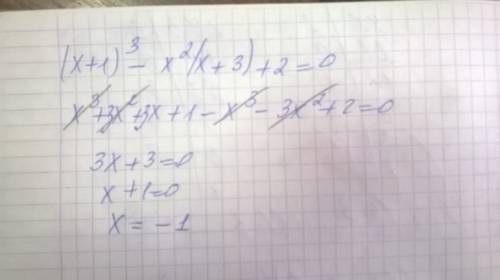 (x+1)³ - x²(x+3) + 2 = 0
x³+3x²+3x+1-x³-3x²+2=0
3x+3=0
x+1=0
x = -1